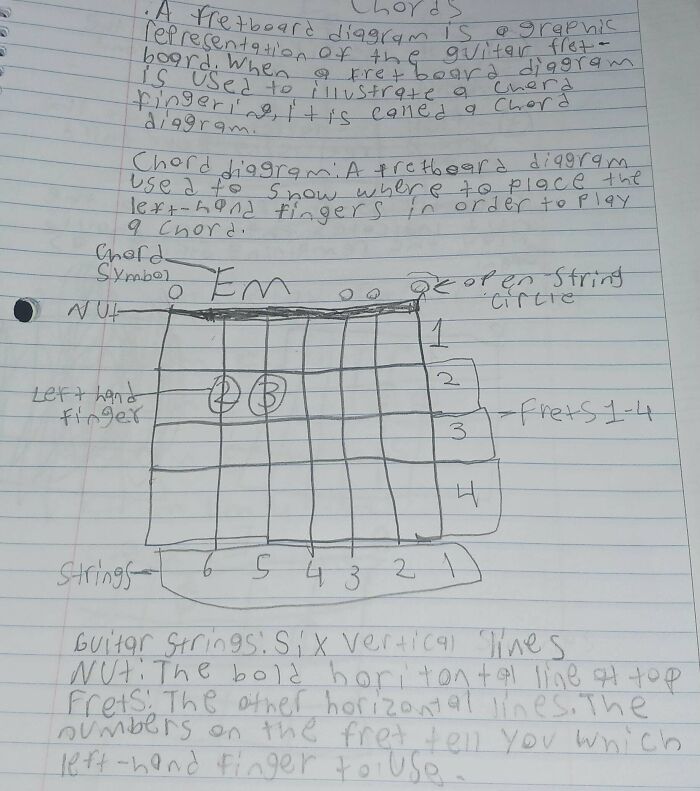 Chords
. A fretboard diagram is a graphic
representation of the guitar fret-
board. When a fretboard diagram
is used to illustrate a chord
fingering, it is called a chord
diagram.
Chord diagram: A fretboard diagram
used to show where to place the
left-hand fingers in order to play
a chord.
Chord
Symbol
EM
o
o o
o
open-string
circle
NUt
1
Left hand
finger
2 3
2
3
= Frets 1-4
4
Strings
6 5 4 3 2 1
Guitar strings: Six vertical lines
NUt: The bold horitontal line at top
Frets: The other horizontal lines. The
numbers on the fret tell you which
left-hand finger to use.